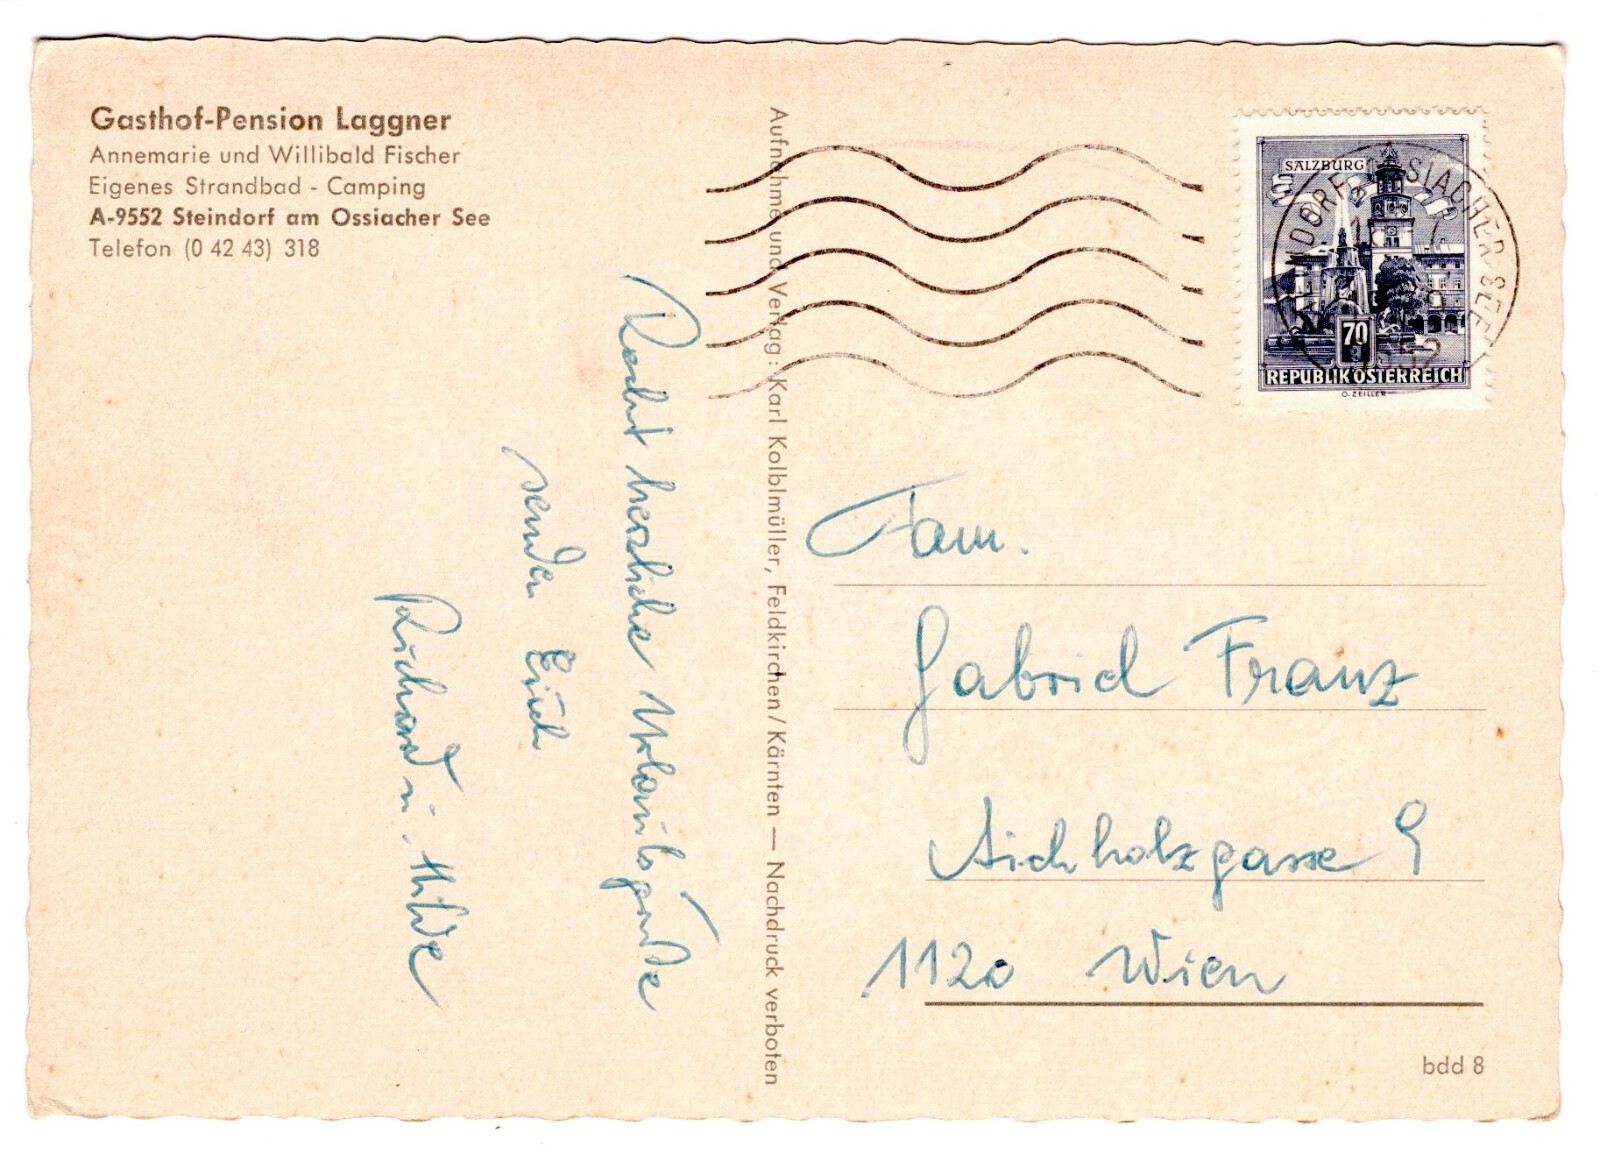 Gasthof-Pension Laggner
Annemarie und Willibald Fischer
Eigenes Strandbad - Camping
A-9552 Steindorf am Ossiacher See
Telefon (0 42 43) 318
Recht herzliche Urlaubsgrüße
senden Euch
Richard u. Hilde
Aufnahme und Verlag: Karl Kolblmüller, Feldkirchen/Kärnten — Nachdruck verboten
SALZBURG
70
g
REPUBLIK ÖSTERREICH
O. ZEILLER
NDORF OSSIACHER SEE
9552
Fam.
Gabriel Franz
Aichholzgasse 9
1120 Wien
bdd 8